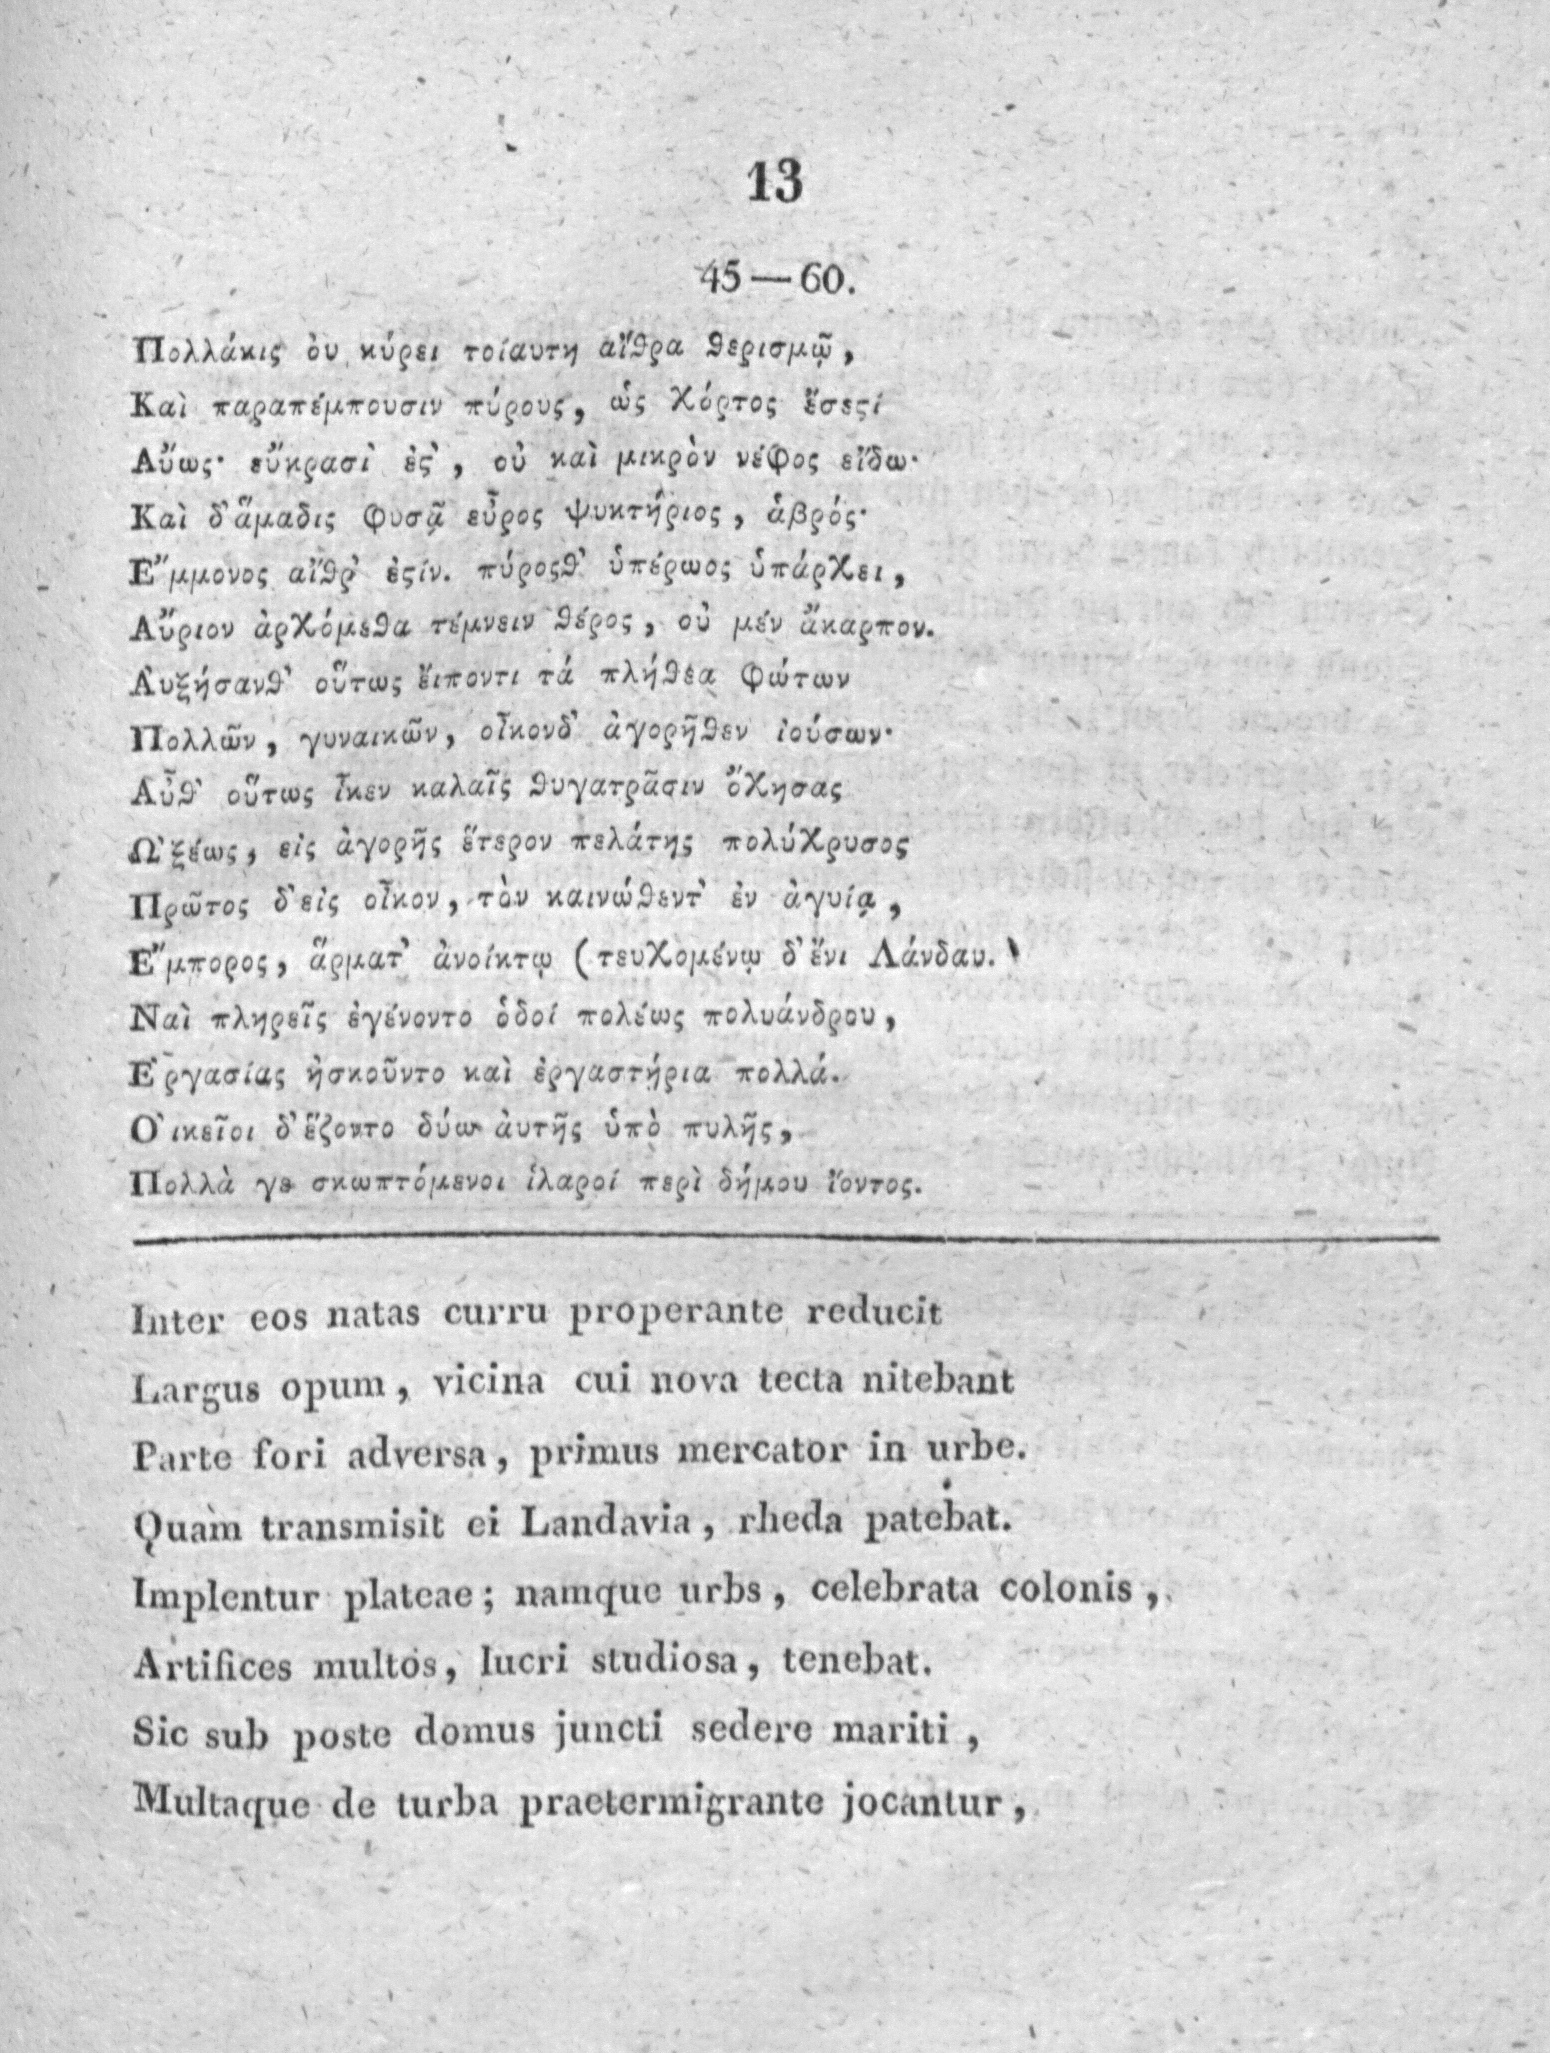 13
45 — 60.
Πολλάκις ὀυ κύρει τοίαυτη αἴθρα θερισμῷ,
Καὶ παραπέμπουσιν πύρους, ὡς χόρτος ἔσεϛί
Αὔως· εὔκρασὶ ἐϛ', οὐ καὶ μικρὸν νέφος εἴδω·
Καὶ δ'ἅμαδις φυσᾷ εὖρος ψυκτήριος, ἁβρός·
Ἔμμονος αἴθρ' ἐϛίν. πύροςθ' ὑπέρωος ὑπάρχει,
Αὔριον ἀρχόμεθα τέμνειν θέρος, οὐ μέν ἄκαρπον.
Ἀυξήσανθ' οὕτως ἔιποντι τά πλήθέα φώτων
Πολλῶν, γυναικῶν, οἶκονδ' ἀγορῆθεν ἰούσων·
Αὖθ' οὕτως ἶκεν καλαῖς θυγατρᾶσιν ὄχησας
Ὠξέως, εἰς ἀγορῆς ἕτερον πελάτης πολύχρυσος
Πρῶτος δ'εἰς οἶκον, τὸν καινώθεντ' ἐν ἀγυίᾳ,
Ἔμπορος, ἅρματ' ἀνοίκτῳ (τευχομένῳ δ'ἔνι Λάνδαυ.)
Ναὶ πληρεῖς ἐγένοντο ὁδοί πολέως πολυάνδρου,
Ἐργασίας ἠσκοῦντο καὶ ἐργαστήρια πολλά.
Ὀικεῖοι δ'ἕζοντο δύω ἀυτῆς ὑπὸ πυλῆς,
Πολλὰ γε σκωπτόμενοι ἱλαροί περὶ δήμου ἴοντος.
Inter eos natas curru properante reducit
Largus opum, vicina cui nova tecta nitebant
Parte fori adversa, primus mercator in urbe.
Quàm transmisit ei Landavia, rheda patebat.
Implentur plateae; namque urbs, celebrata colonis,
Artifices multos, lucri studiosa, tenebat.
Sic sub poste domus juncti sedere mariti,
Multaque de turba praetermigrante jocantur,